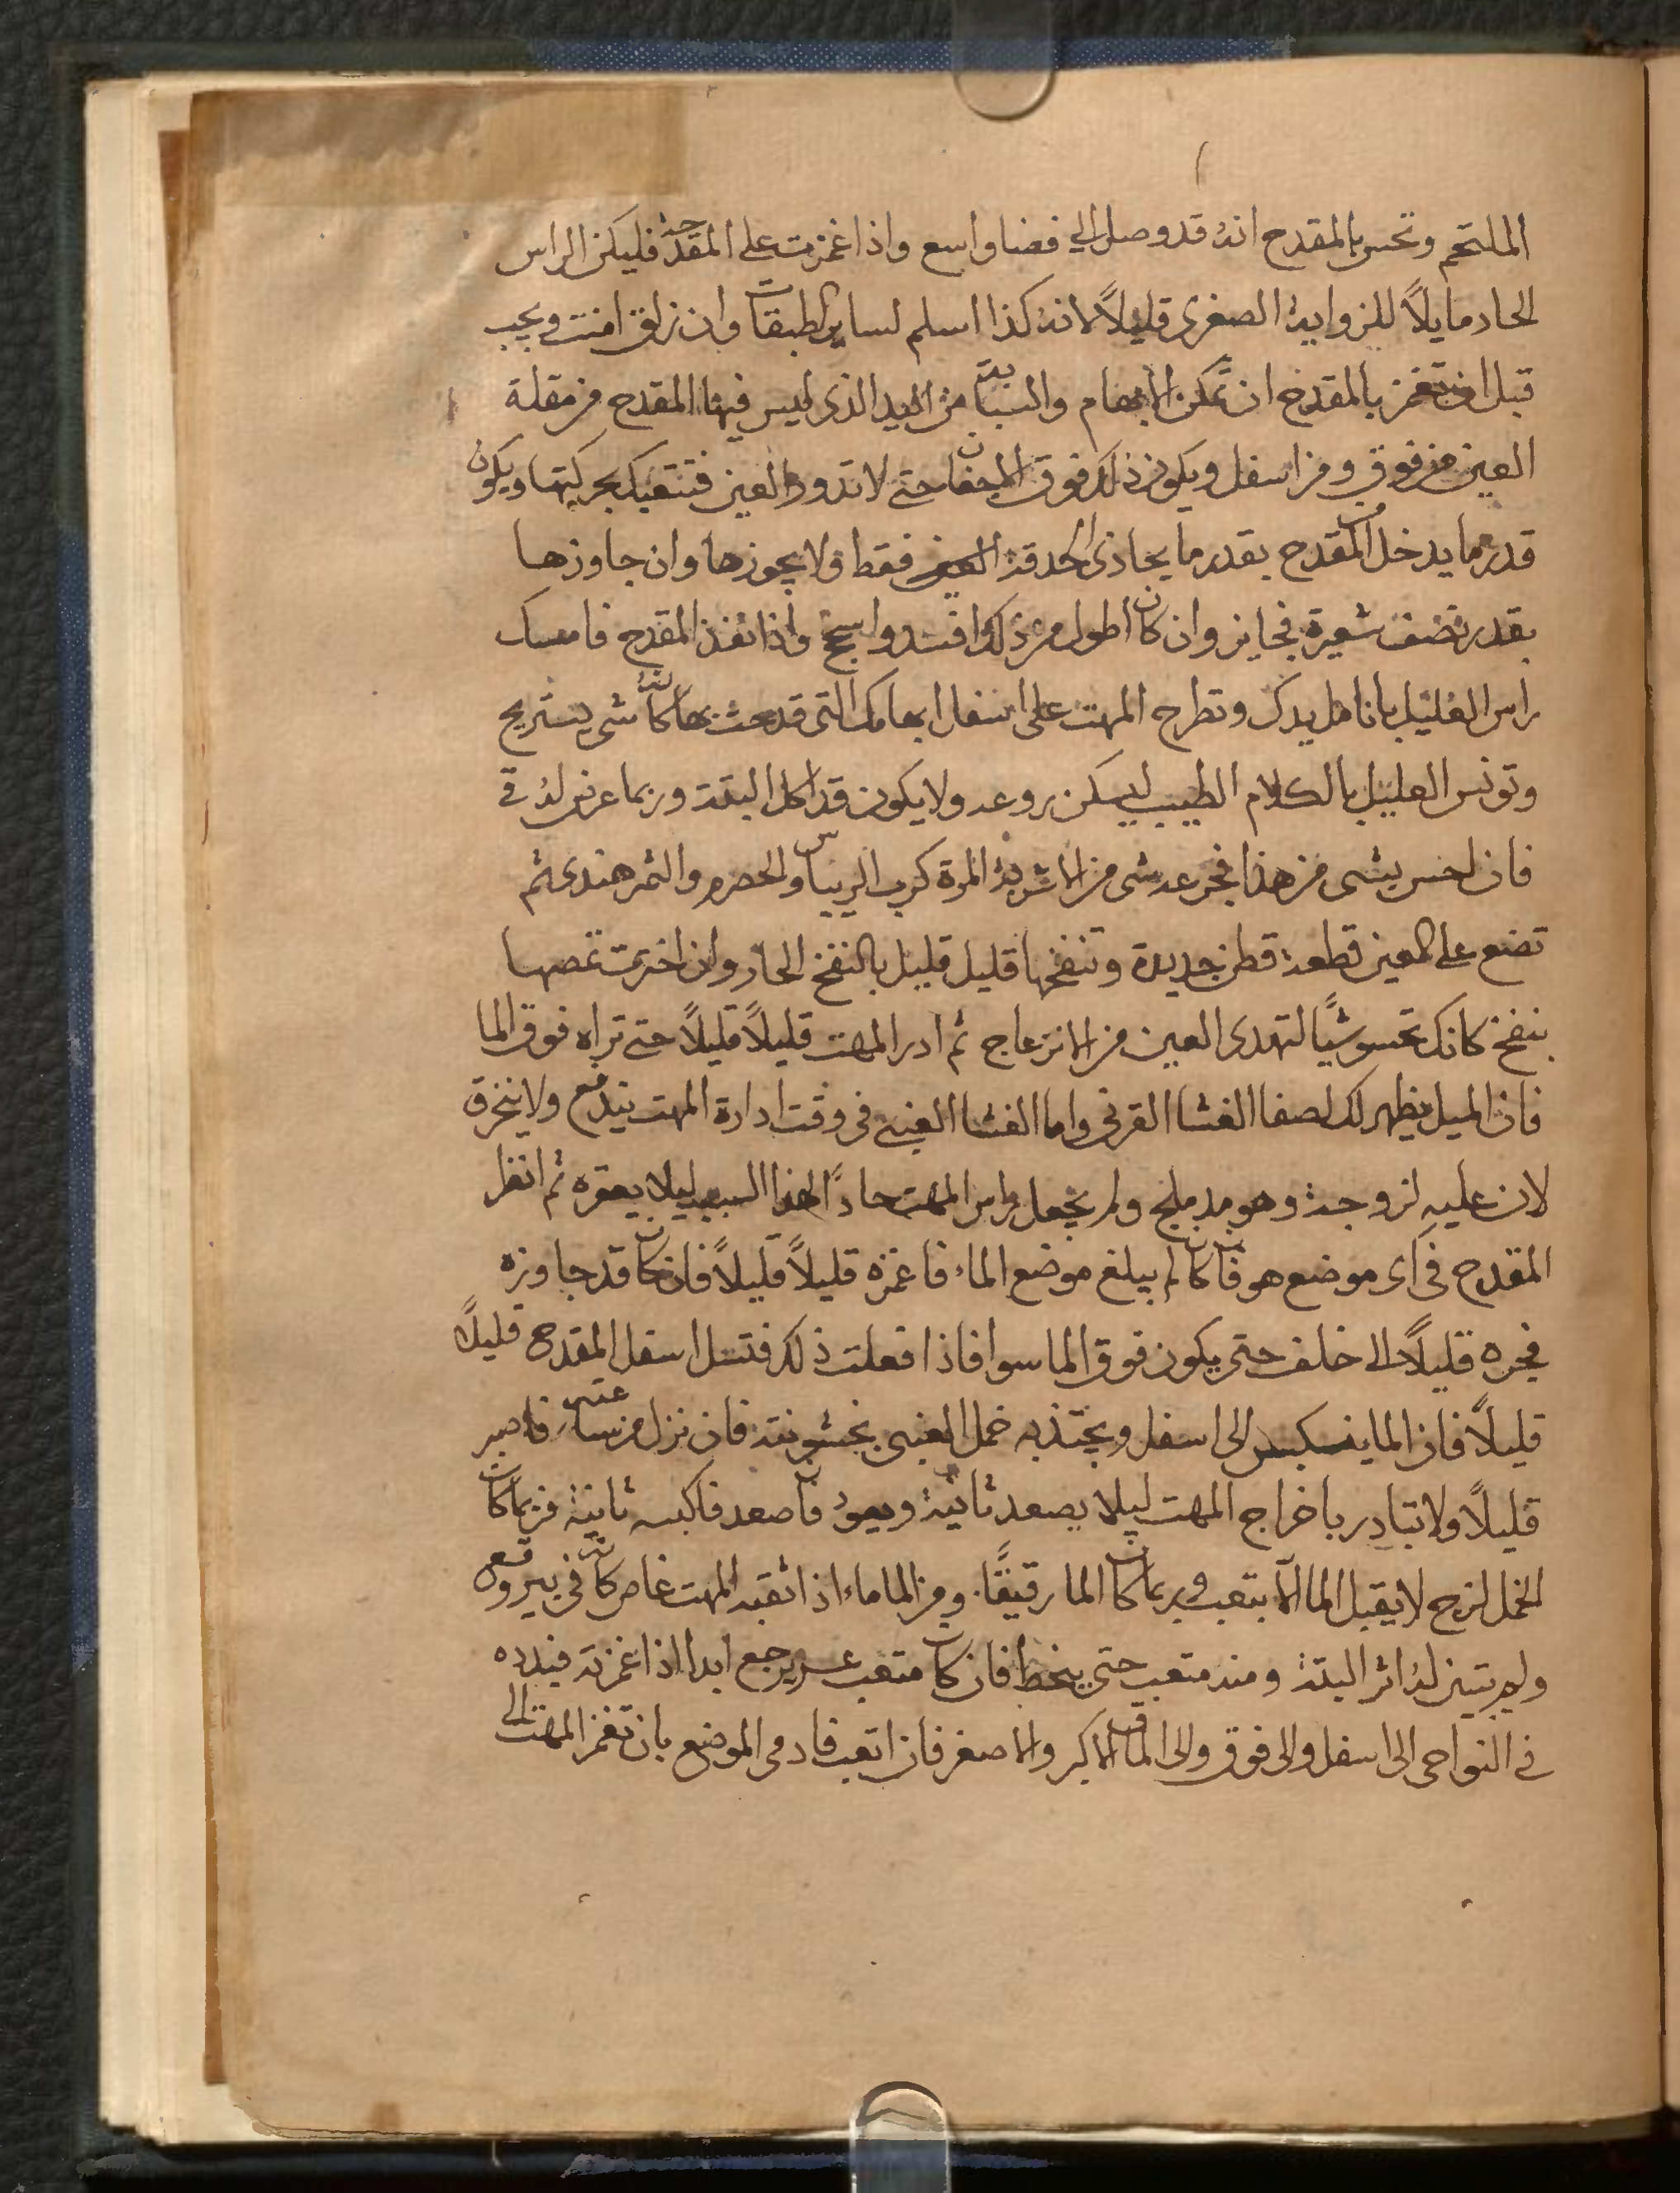 الملتحم وتحس بالمقدح انه قد وصل الى فضا واسع واذا غمزت على المقدحة فليكن الراس
الحاد مايلاً للزواية الصغرى قليلاً لانه كذا اسلم لساير الطبقات وان زلق امنت ويجب
قبل ان تغمز بالمقدح ان تمكن الابهام والسبابة من اليد الذى ليس فيها المقدح من مقلة
العين من فوق ومن اسفل ويكون ذلك فوق الاجفان حتى لا تدور العين فتتعبك بحركتها ويكون
قدر ما يدخل المقدح بقدر ما يحاذى الحدقة العين فقط ولا يجوزها وان جاوزها
بقدر نصف شعيرة فجايز وان كان اطول من ذلك افسد واسحج واذا نفذ المقدح فامسك
راس العليل بانامل يدك وتطرح المهت على اسفل ابهامك التى قدحت بها كانه شى يستريح
وتونس العليل بالكلام الطيب ليسكن روعه ولا يكون قد اكل البتة وربما عرض له قى
فان احس بشى من هذا فجرعه شى من الاشربة المزة كرب الريباس والحصرم والتمر هندى ثم
تضع على العين قطعة قطن جديدة وتنفخها قليل قليل بالنفخ الحار وان اخترت تمصها
بنفخ كانك تحسو شيًا لتهدى العين من الانزعاج ثم ادر المهت قليلاً قليلاً حتى تراه فوق الما
فان الميل يظهر لك لصفا الغشا القرنى واما الغشا العنبى فى وقت ادارة المهت يندفع ولا ينخرق
لان عليه لزوجة وهو مدملج ولم يجعل راس المهت حاداً لهذا السبب ليلا يعقره ثم انظر
المقدح فى اى موضع هو فان كان لم يبلغ موضع الماء فاغمزه قليلاً قليلاً فان كان قد جاوزه
فجره قليلاً الى خلف حتى يكون فوق الما سوا فاذا فعلت ذلك فتشل اسفل المقدح قليلاً
قليلاً فان الما ينكبس الى اسفل ويجتذبه خمل العنبى بخشونته فان نزل من ساعته فاصبر
قليلاً ولا تبادر باخراج المهت ليلا يصعد ثانية ويعود فان صعد فاكبسه ثانية فربما كان
الخمل لزج لا يقبل الما الا بتعب وربما كان الما رقيقًا. ومن الما ماء اذا ثقبه المهت غاص كانه فى بير وقع
ولم يتبين له اثر البتة ومنه متعب حتى ينحط فان كان متعب عسر يرجع ابدا اذا غمزته فبدده
فى النواحى الى اسفل والى فوق والى الماق الاكبر والاصغر فان اتعب فادمى الموضع بان تغمز المهت الى